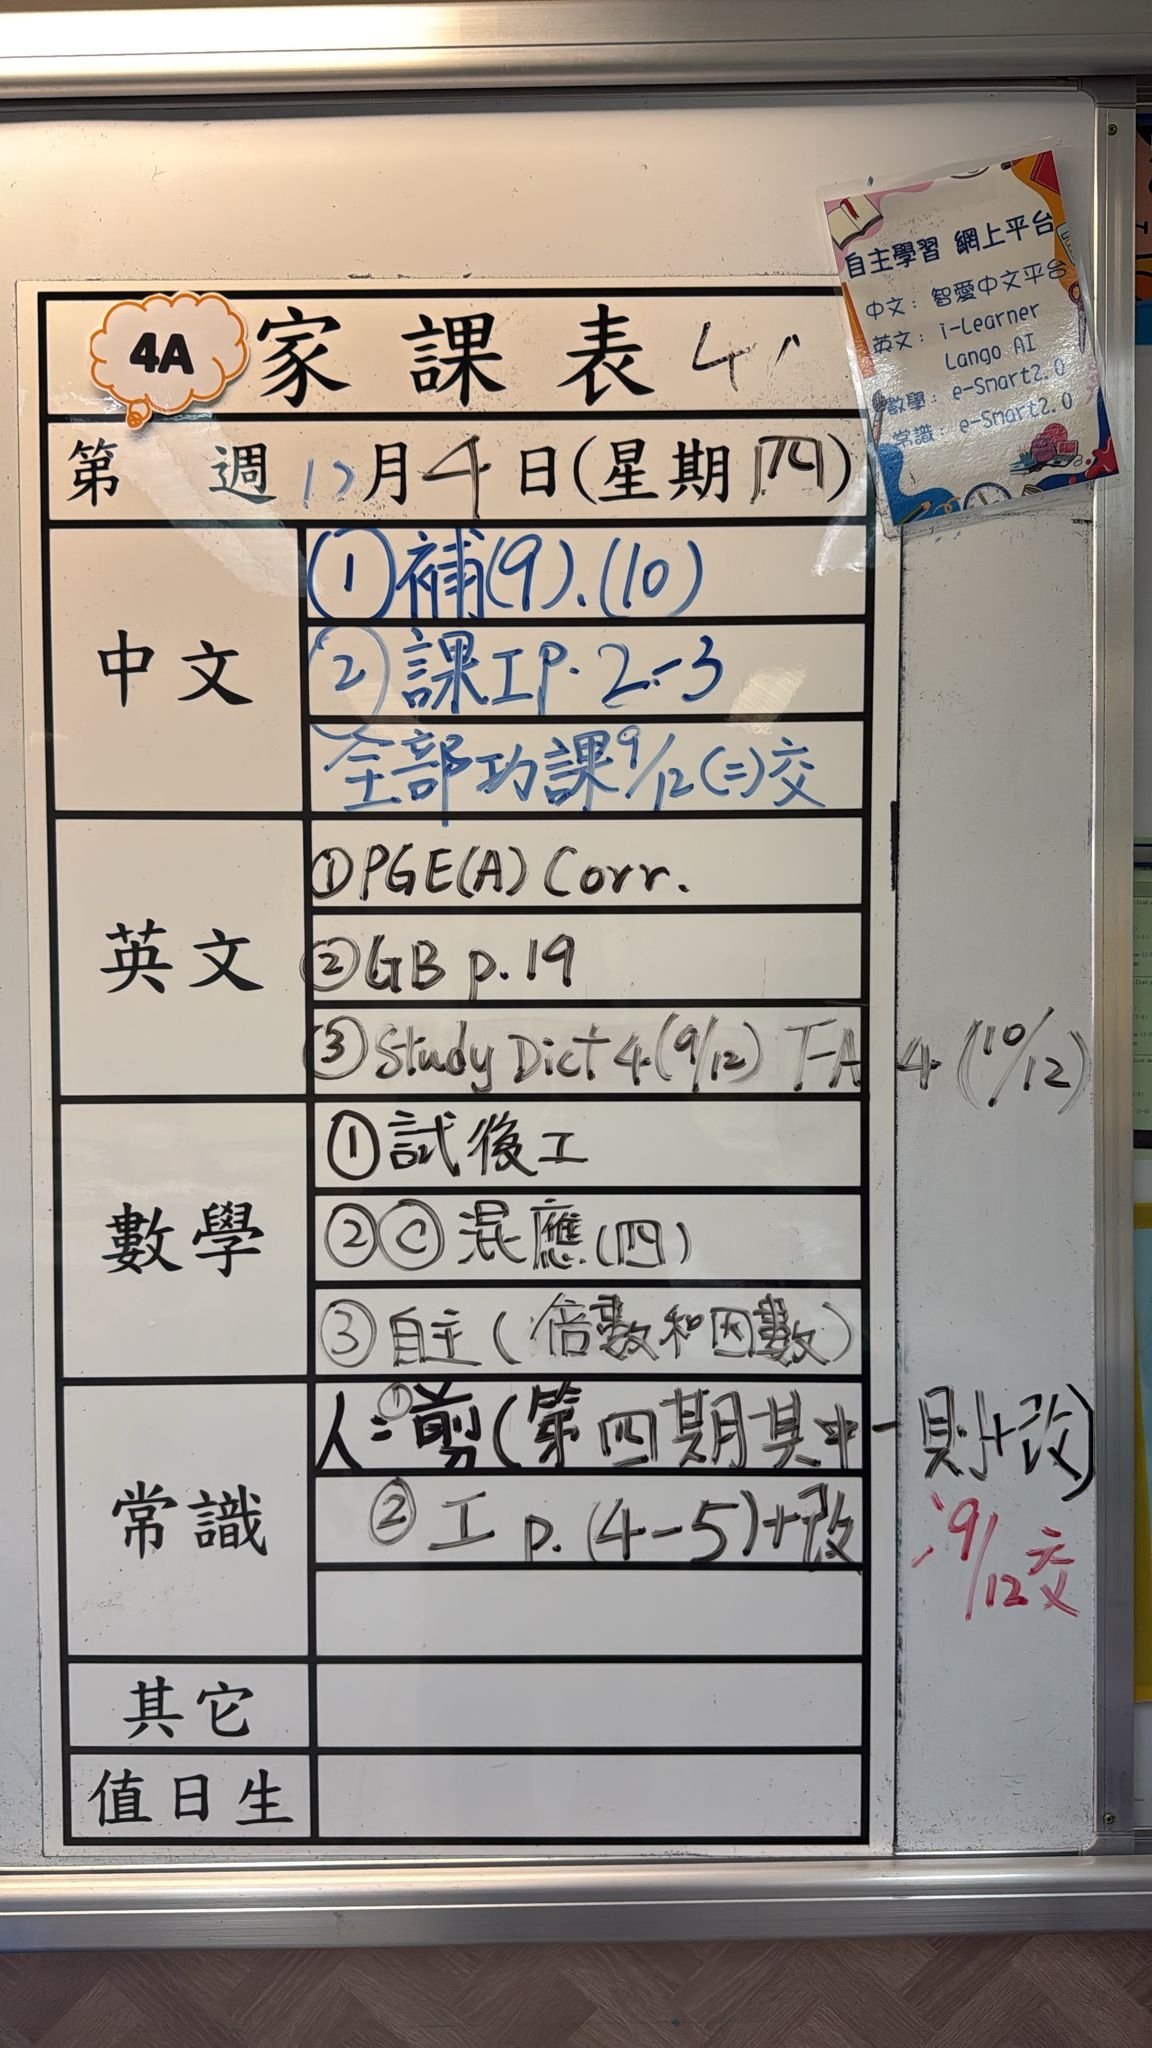 4A 家課表
自主學習 網上平台
中文：智愛中文平台
英文：i-Learner
Lango AI
數學：e-Smart2.0
常識：e-Smart2.0
第 週 12月4日(星期四)
中文
①補(9).(10)
②課工P.2-3
全部功課9/12(二)交
英文
①PGE(A) Corr.
②GB p.19
③Study Dict 4 (9/12) T-A 4 (10/12)
數學
①試後工
②Ⓒ 混應(四)
③自主(倍數和因數)
常識
人：①剪(第四期其中一則+改)
②工 p.(4-5)+改
9/12交
其它
值日生